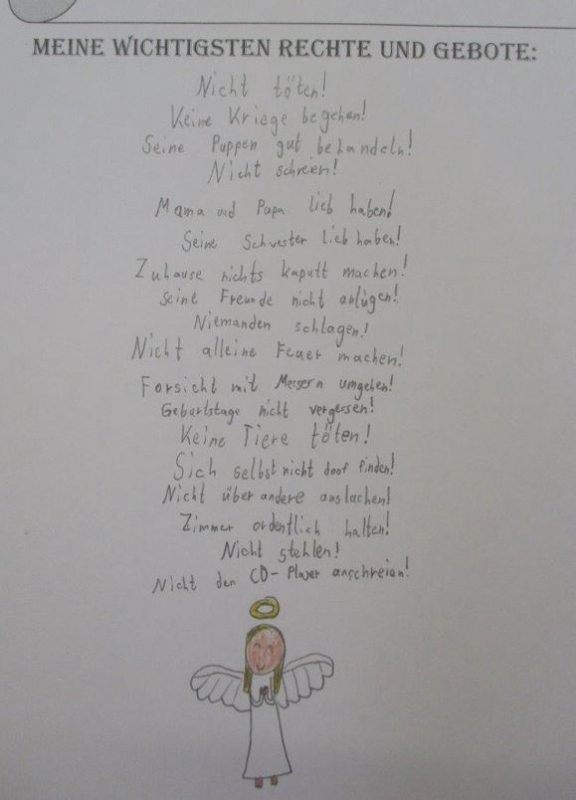 MEINE WICHTIGSTEN RECHTE UND GEBOTE:
Nicht töten!
Keine Kriege begehen!
Seine Puppen gut behandeln!
Nicht schreien!
Mama und Papa lieb haben!
Seine Schwester lieb haben!
Zuhause nichts kaputt machen!
Seine Freunde nicht anlügen!
Niemanden schlagen!
Nicht alleine Feuer machen!
Forsicht mit Messern umgehen!
Geburtstage nicht vergessen!
Keine Tiere töten!
Sich selbst nicht doof finden!
Nicht über andere auslachen!
Zimmer ordentlich halten!
Nicht stehlen!
Nicht den CD-Player anschreien!